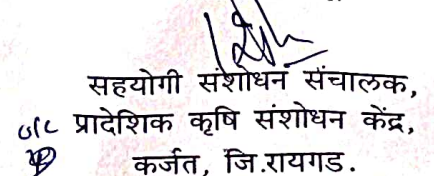 सहयोगी संशोधन संचालक,
o/c प्रादेशिक कृषि संशोधन केंद्र,
कर्जत, जि.रायगड.